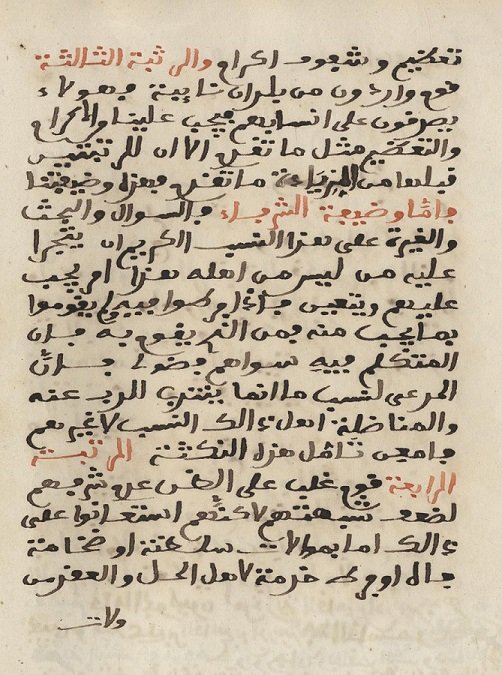 تعظيم وشفوف اكرام والمرتبة الثالثة
قوم واردون من بلدان نايية فهولاء
يصدقون على انسابهم فيجب علينا والاكرام
والتعظيم مثل ما تقدم الا ان للمرتبتين
قبلها من المزية ما تقدم فهذا وضيفتنا
واما وضيفة الشرفاء فالسوال والبحث
والغيرة على هذا النسب الكريم ان يتجرا
عليه من ليس من اهله هذا امر يجب
عليهم ويتعين فاذا فرطوا فيه ولم يقوموا
بما يجب منه فمن الذي يقوم به فان
المتكلم فيه سواهم فضولي فان
المدعى لنسب ما انما ينتدب للرد عنه
والمناضلة اهل ذالك النسب لا غيرهم
فامعن تامل هذه النكتة المرتبة
الرابعة قوم غلب على الظن عدم شرفهم
لضعف شبهتهم لاكنهم استعانوا على
ذالك اما بموالات سلطنة او ضخامة
جاه او فرط خدمة لاهل الحل والعقد من
ولات